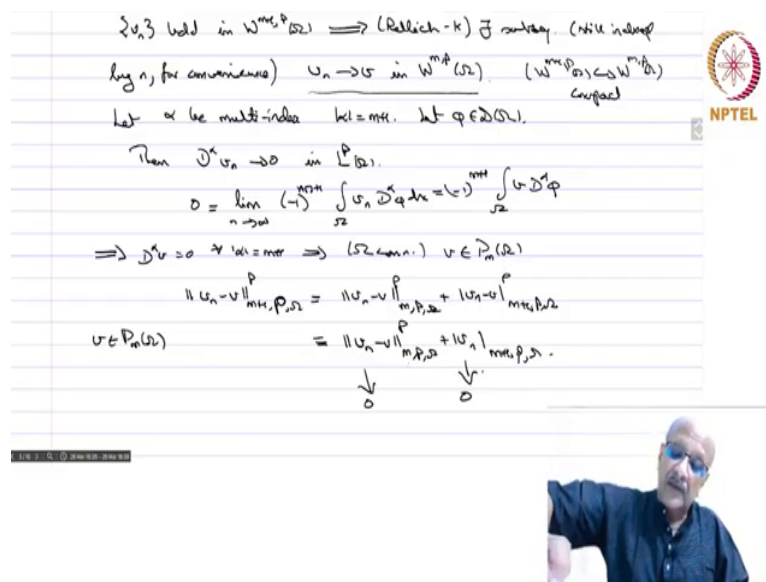 {v_n} bdd in W^{m+1,p}(Ω) ⟹ (Rellich-K) ∃ subseq. (still indexed
by n, for convenience) v_n → v in W^{m,p}(Ω). (W^{m+1,p}(Ω) ↪ W^{m,p}(Ω)
compact
NPTEL
Let α be multi-index |α| = m+1. Let φ ∈ D(Ω).
Then D^α v_n → 0 in L^p(Ω).
0 = lim_{n→∞} (-1)^{m+1} ∫_Ω v_n D^α φ dx = (-1)^{m+1} ∫_Ω v D^α φ
⟹ D^α v = 0 ∀ |α| = m+1 ⟹ (Ω conn.) v ∈ P_m(Ω)
||v_n - v||^p_{m+1,p,Ω} = ||v_n - v||^p_{m,p,Ω} + |v_n - v|^p_{m+1,p,Ω}
v ∈ P_m(Ω) = ||v_n - v||^p_{m,p,Ω} + |v_n|_{m+1,p,Ω}.
↓ ↓
0 0